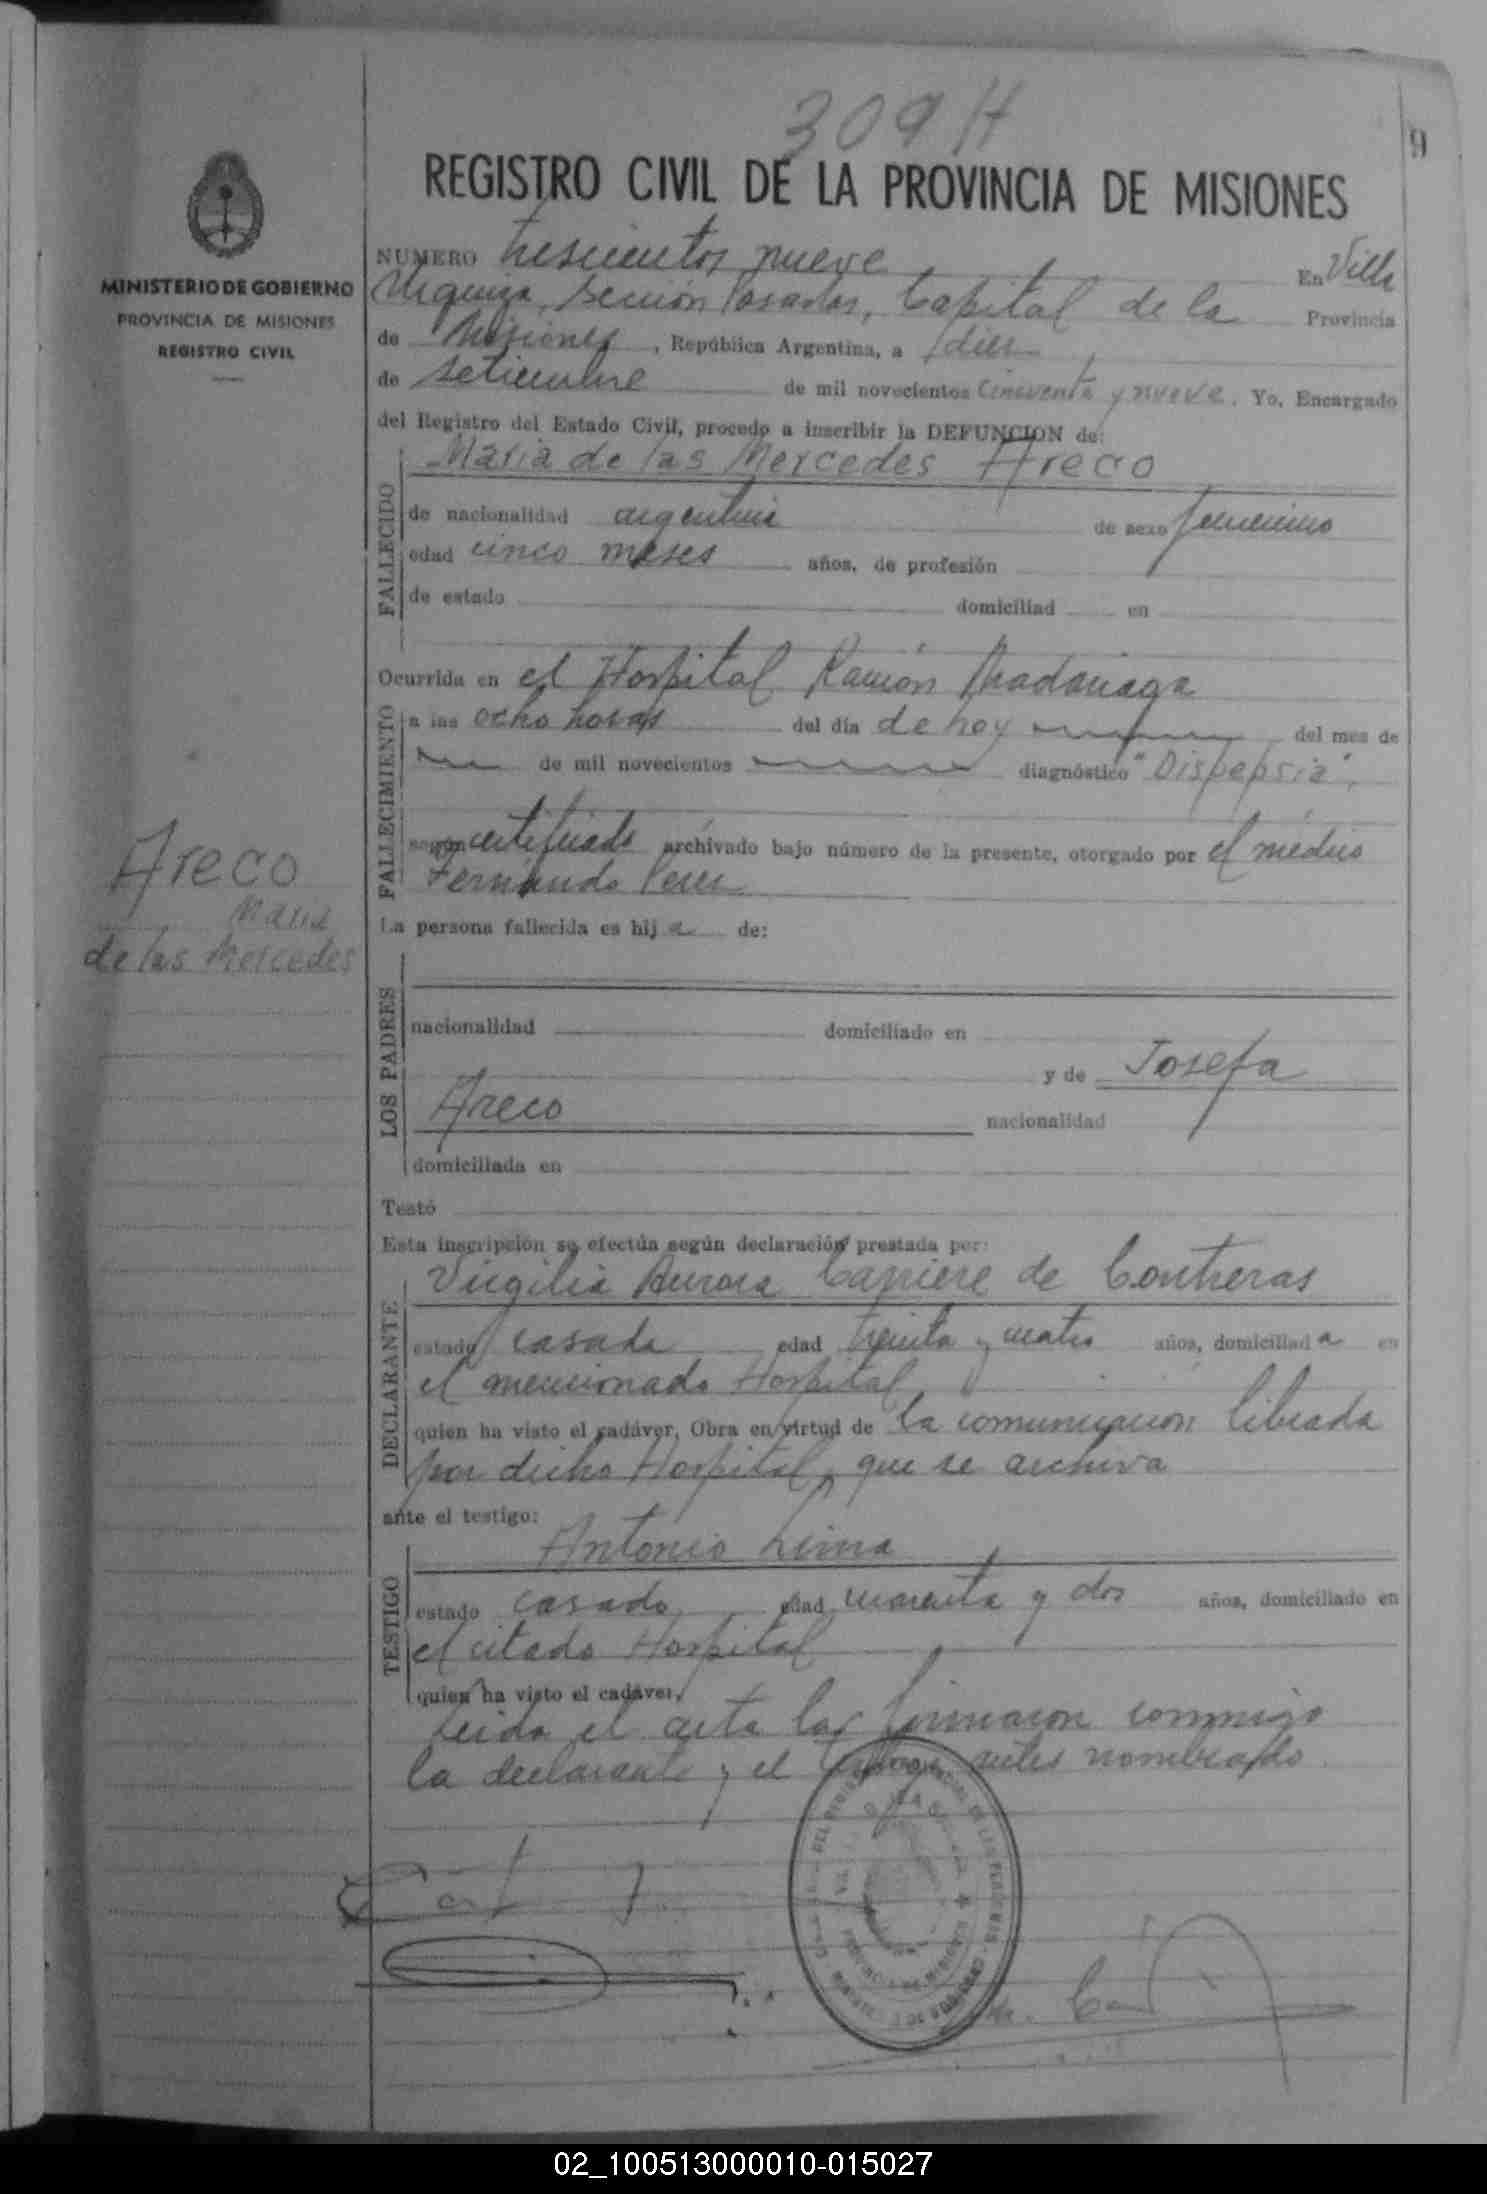 309 H
9
REGISTRO CIVIL DE LA PROVINCIA DE MISIONES
MINISTERIO DE GOBIERNO
PROVINCIA DE MISIONES
REGISTRO CIVIL
NUMERO trescientos nueve En Villa
Urquiza, Sección Posadas, Capital de la Provincia
de Misiones, República Argentina, a diez
de setiembre de mil novecientos cincuenta y nueve. Yo, Encargado
del Registro del Estado Civil, procedo a inscribir la DEFUNCION de:
Maria de las Mercedes Areco
FALLECIDO
de nacionalidad argentina de sexo femenino
edad cinco meses años, de profesión
de estado domiciliad en
Ocurrida en el Hospital Ramón Madariaga
FALLECIMIENTO
a las ocho horas del día de hoy del mes de
de mil novecientos diagnóstico "Dispepsia",
según certificado archivado bajo número de la presente, otorgado por el médico
Fernando Perez
Areco
Maria
de las Mercedes
La persona fallecida es hija de:
LOS PADRES
nacionalidad domiciliado en
y de Josefa
Areco nacionalidad
domiciliada en
Testó
Esta inscripción se efectúa según declaración prestada por:
Virgilia Aurora Carriere de Contreras
DECLARANTE
estado casada edad treinta y cuatro años, domiciliada en
el mencionado Hospital
quien ha visto el cadáver, Obra en virtud de la comunicación librada
por dicho Hospital, que se archiva
ante el testigo:
Antonio Lima
TESTIGO
estado casado edad cuarenta y dos años, domiciliado en
el citado Hospital
quien ha visto el cadáver,
Leida el acta la firmaron conmigo
la declarante y el testigo antes nombrado.
02_100513000010-015027